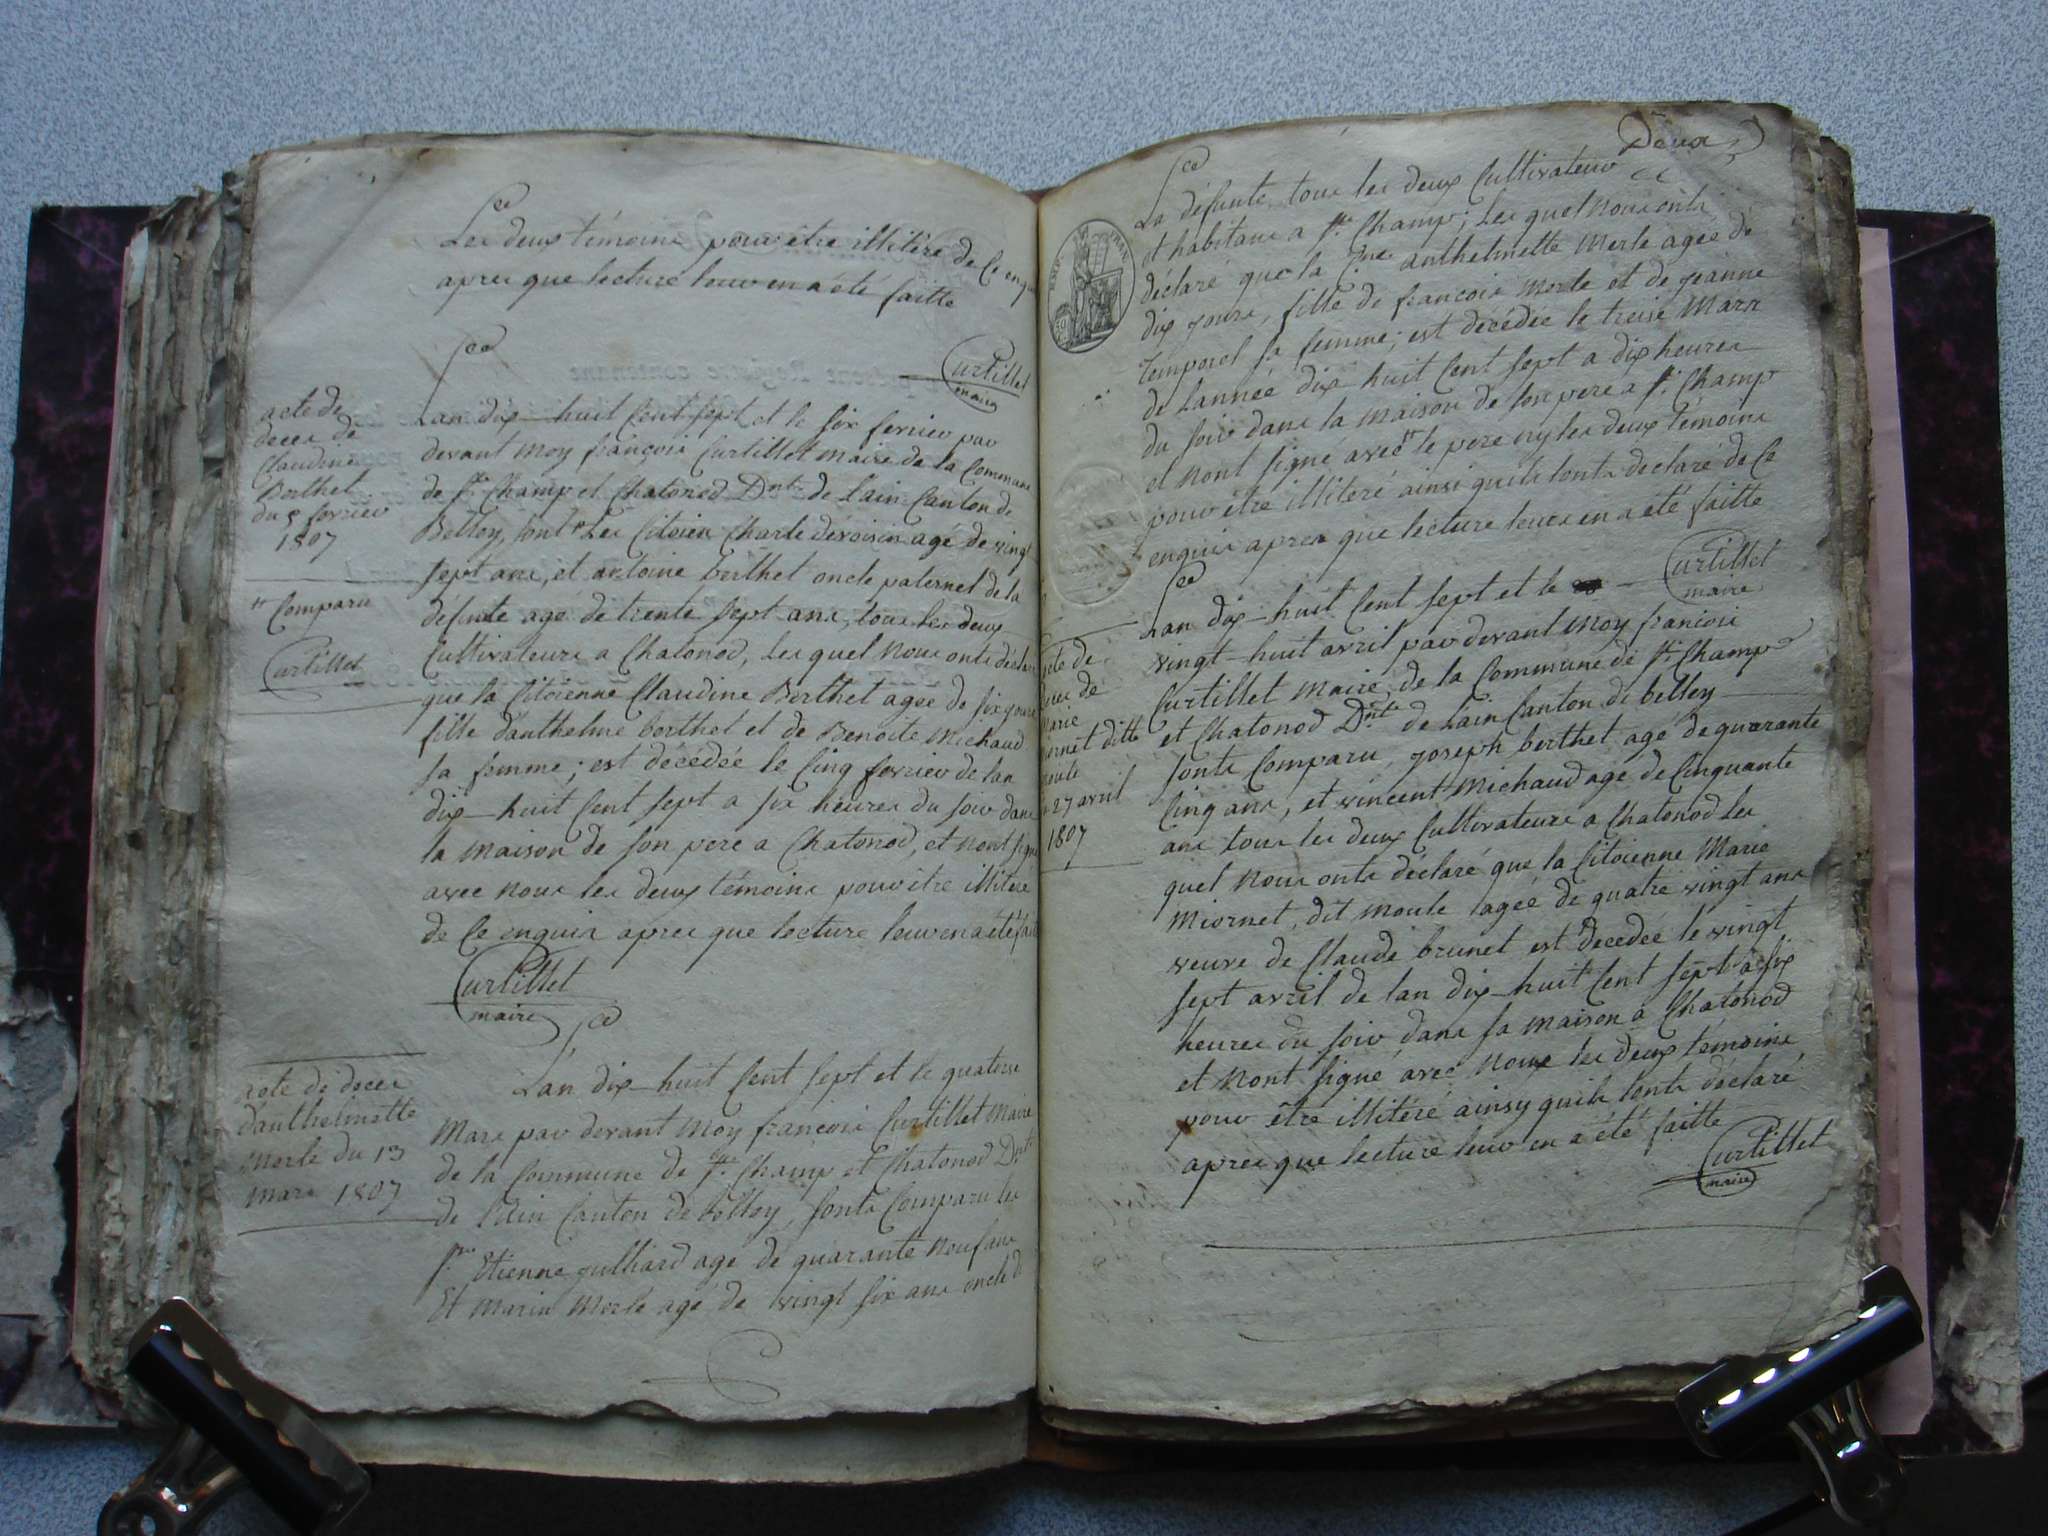 Les deux témoins pour être illitére de ce enquis
apres que lecture leur en a été faitte
Curtillet
maire
acte de
deces de
Claudine
Berthet
du 5 fevrier
1807
Comparu
Curtillet
Lan dix-huit cent sept et le six fevrier par
devant moy françois Curtillet maire de la Commune
de St Champ et Chatonod Dnt de Lain Canton de
Belley, sont Les Citoien Charle dévoisin agé de vingt
sept ans, et antoine berthet oncle paternel de la
défunte agé de trente sept ans, tous les deux
Cultivateurs a Chatonod, Les quel nous onts déclaré
que la Citoienne Claudine Berthet agée de six jours
fille d'anthelme berthet et de Benoite Michaud
sa femme; est décédée le Cinq fevrier de lan
dix-huit cent sept a six heures du soir dans
la maison de son pere a Chatonod, et nont signé
avec nous les deux témoins pour être illitéré
de ce enquis apres que lecture leur en a été fait
Curtillet
maire
acte de deces
d'anthelmette
Merle du 13
Mars 1807
Lan dix-huit cent sept et le quatorse
Mars par devant moy francois Curtillet Maire
de la Commune de St Champ et Chatonod Dnt
de L'ain Canton de belley, sonts Comparu les
Srs Etienne julliard agé de quarante neuf ans
Et Marin Merle agé de vingt six ans oncle de
Deux
La défunte, tous les deux Cultivateur
et habitans a St Champ; Les quel nous onts
déclaré que la Cnne anthelmette Merle agée de
dix jours, fille de francois Merle et de jeanne
Temporel sa femme; est décédée le treise Mars
de Lannée dix huit cent sept a dix heures
du soir dans la maison de son pere a St Champ
et nont signé avec le pere ny les deux témoins
pour être illiteré ainsi quils lonts declaré de ce
enquis apres que lecture leurs en a été faitte
Curtillet
maire
27 avril
1807
Lan dix-huit cent sept et le
vingt-huit avril par devant moy francois
Curtillet maire de la Commune de St Champ
et Chatonod Dnt de Lain Canton de belley
sonts Comparu, joseph berthet agé de quarante
Cinq ans, et vincent Michaud agé de Cinquante
ans tous les deux Cultivateurs a Chatonod les
quel nous onts déclaré que la Citoienne Marie
Miornet, dit Moule agée de quatre vingt ans
veuve de Claude brunet est decedée le vingt
sept avril de lan dix-huit cent sept a six
heures du soir dans sa maison a Chatonod
et nont signé avec nous les deux témoins
pour être illitéré ainsy quils lonts déclaré
apres que lecture leur en a été faitte
Curtillet
maire